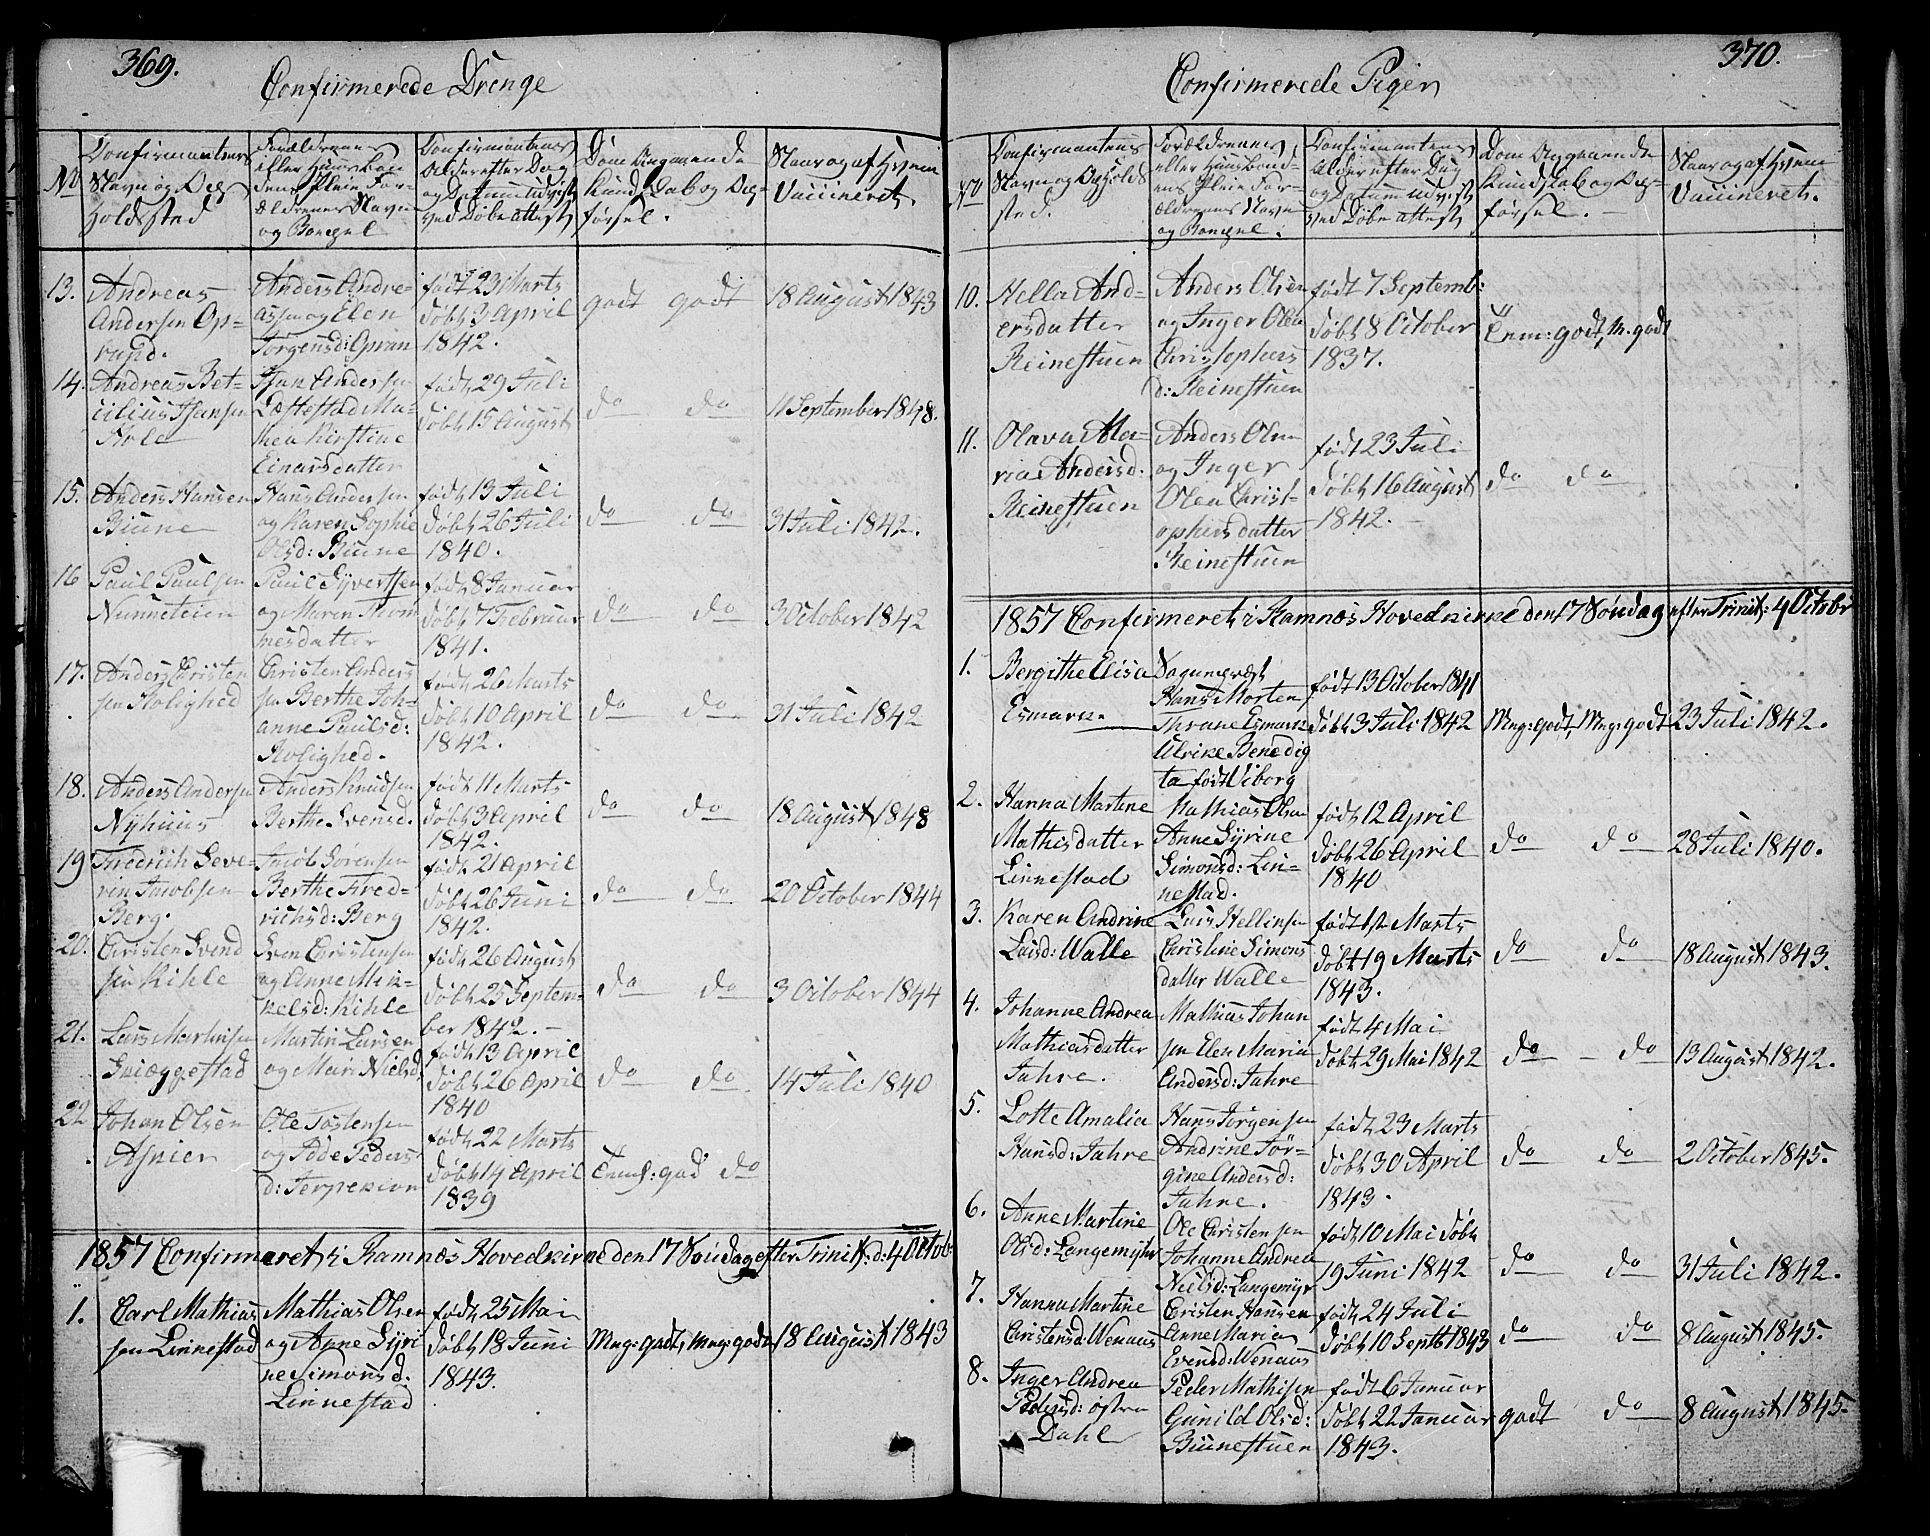 369.
Confirmerede Drenge
No
Confirmantens
Navn og Op-
holdssted
Forældrenes
eller Huusbon-
dens, Pleie For-
ældrenes Navn
og Boepæl
Confirmantens
Alder efter Dag
og Datum udvist
ved Døbe attest
Dom Angaaende
Kundskab og Op-
førsel.
Naar og af Hvem
Vaccineret
13.
Andreas
Andersen Op-
rund.
Anders Andre-
assen og Elen
Jørgensd:
født 23 Marts
døbt 3 April
1842.
godt godt
18 August 1843
14.
Andreas Bet-
cilius Hansen
Hole
Hans Andersen
Løftestad Ma-
thea Kirstine
Einarsdatter
født 29 Juli
døbt 15 August
do do
11 September 1848.
15.
Anders Hansen
Biune
Hans Andersen
og Karen Sophie
Olsd: Biune
født 13 Juli
døbt 26 Juli
1840.
do do
31 Juli 1842.
16
Paul Paulsen
Nunneteien
Paul Syvertsen
og Maren Thom
mesdatter
født 8 Januar
døbt 7 Februar
1841.
do do
3 October 1842
17.
Anders Cristen
sen Rolighed
Christen Anders
sen Berthe Joh-
anne Paulsd:
Rolighed.
født 26 Marts
døbt 10 April
1842.
do do
31 Juli 1842
18.
Anders Andersen
Nyhuus
Anders Knudsen
Berthe Svensd.
født 11 Marts
døbt 3 April
1842.
do do
18 August 1848
19
Fredrich Seve-
rin Jacobsen
Berg.
Jacob Sørensen
Berthe Fred-
richsd: Berg
født 21 April
døbt 26 Juni
1842.
do do
20 October 1844
20.
Cristen Svend
sen Kihle
Sven Cristensen
og Anne Mik-
kelsd: Kihle
født 26 August
døbt 25 Septem-
ber 1842.-
do do
3 October 1844
21.
Lars Martinsen
Snæggestad
Martin Larsen
og Mari Nielsd
født 13 April
døbt 26 April
1840
do do
14 Juli 1840
22
Johan Olsen
Asnier
Ole Tostensen
og Pede Peders
d:
født 22 Marts
døbt 14 April
1839
Temf: god do
1857 Confirmeret i Ramnæs Hovedkirke den 17 Søndag efter Trinit: d: 4 Octob
1.
Carl Mathias
sen Linnestad
Mathias Olsen
og Anne Syri
ne Simonsd.
Linnestad
født 25 Mai
døbt 18 Juni
1843.
Mng: godt, mng: godt
18 August 1843
370.
Confirmerede Piger
No
Confirmantens
Navn og Opholds
sted.
Forældrenes
eller Huusbond-
ens Pleie For-
ældrenes Navn
og Boepæl.
Confirmantens
Alder efter Dag
og Datum udvist
ved Døbe attest
Dom Angaaende
Kundskab og Op-
førsel. -
Naar og af Hvem
Vaccineret.
10.
Hella And-
ersdatter
Reinestuen
Anders Olsen
og Inger Olea
Christophers
d: Reinestuen
født 7 Septemb:
døbt 8 October
1837.
Tem: godt, M. godt
11.
Olava Ma-
ria Andersd:
Reinestuen
Anders Olsen
og Inger
Olea Christ-
ophersdatter
Reinestuen
født 23 Juli
døbt 16 August
1842.-
do do
1857 Confirmeret i Ramnæs Hovedkirke den 17 Søndag efter Trinit: 4 Octobr
1.
Bergithe Elisa
Esmark.
Hans Morten
Thrane Esmark
Ulrike Benedig
ta født Viborg
født 13 October 1841
døbt 3 Juli 1842
Mng: godt, Mng: godt
23 Juli 1842.
2.
Hanna Martine
Mathisdatter
Linnestad
Mathias Olsen
Anne Syrine
Simonsd: Lin-
nestad.
født 12 April
døbt 26 April
1840
do do
28 Juli 1840.
3.
Karen Andrine
Larsd: Walle
Lars Hellinsen
Christine Simons
datter Walle
født 1st Marts
døbt 19 Marts
1843.
do do
18 August 1843.
4.
Johanne Andrea
Mathiasdatter
Jahre.
Mathias Johan
sen Elen Maria
Andersd: Jahre
født 4 Mai
døbt 29 Mai 1842
do - do
13 August 1842.
5.
Lotte Amalia
Hansd: Jahre
Hans Jørgensen
Andrine Jør-
gine Andersd:
Jahre.
født 23 Marts
døbt 30 April
1843.
do do
2 October 1845.
6.
Anne Martine
Olsd: Langemyhr
Ole Christensen
Johanne Andrea
Nielsd: Langemyr
født 10 Mai døbt
19 Juni 1842
do do
31 Juli 1842.
7.
Hanna Martine
Cristensd: Wenaas
Cristen Hansen
Anne Maria
Evensd: Wenaas
født 24 Juli
døbt 10 Septb 1843
do do
8 August 1845.
8.
Inger Andrea
Pedersd: østre
Dahl
Peder Mathisen
Gunild Olsd:
Biunestuen
født 6 Januar
døbt 22 Januar
1843.
godt do
8 August 1845.